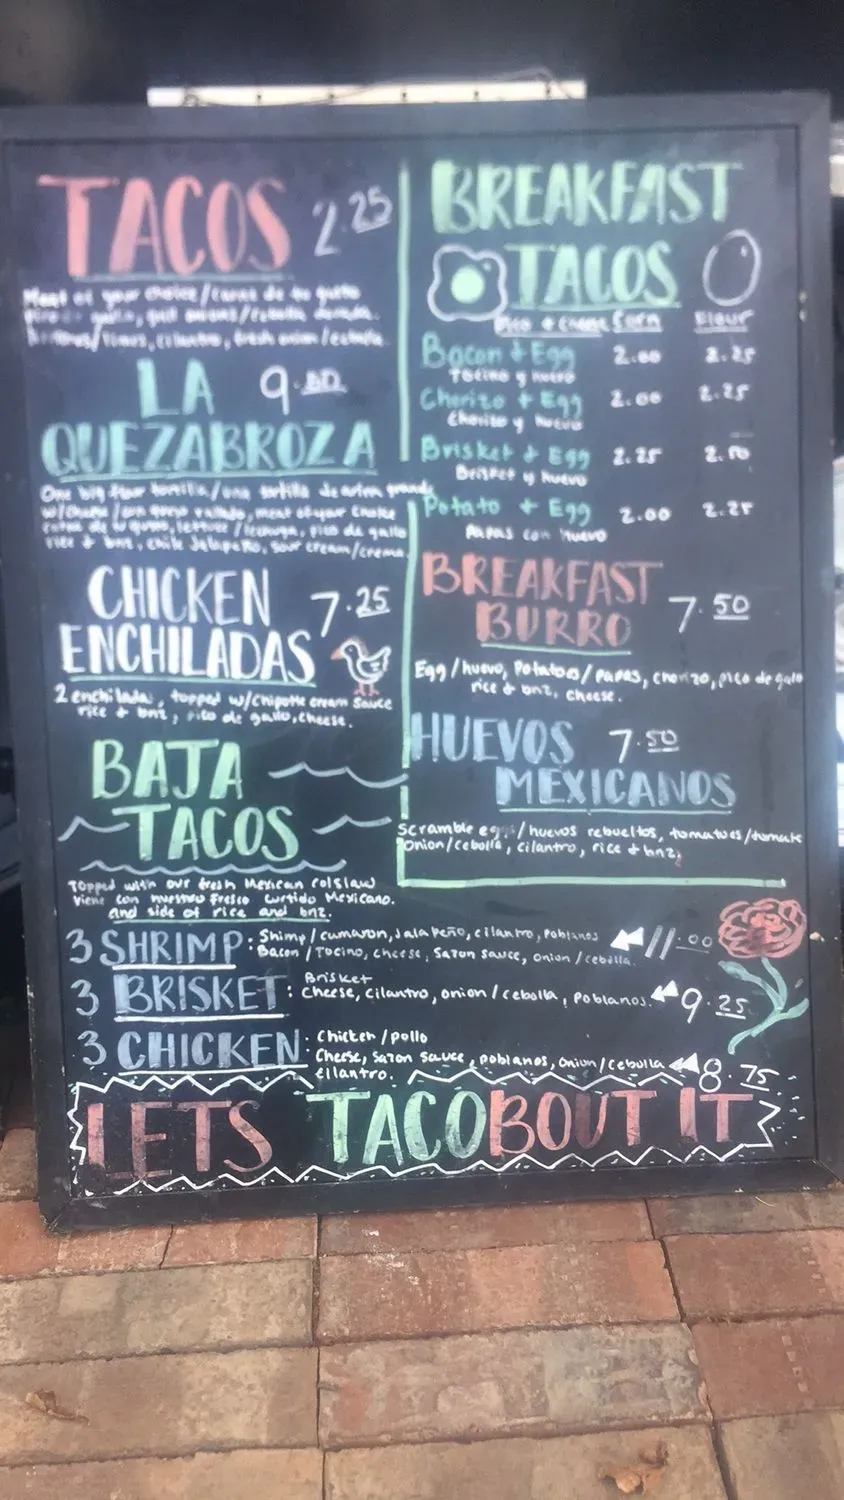 TACOS 2.25
Meat of your choice/carne de tu gusto
pico de gallo, grill onions/cebolla dorada
limones/limes, cilantro, fresh onion/cebolla.
LA 9.
QUEZABROZA
One big flour tortilla/una tortilla de arina grande
w/cheese/con queso rallado, meat of your choice
carne de tu gusto, lettuce/lechuga, pico de gallo
rice & bnz, chile Jalapeño, sour cream/crema.
CHICKEN 7.25
ENCHILADAS
2 enchiladas, topped w/chipotle cream sauce
rice & bnz, pico de gallo, cheese.
BAJA
TACOS
Topped with our fresh Mexican colslaw
viene con nuestro fresco curtido Mexicano.
and side of rice and bnz.
BREAKFAST
TACOS
Pico & Cheese Corn Flour
Bacon + Egg 2.00 2.25
Tocino y huevo
Chorizo + Egg 2.00 2.25
Chorizo y huevo
Brisket + Egg 2.25 2.50
Brisket y huevo
Potato + Egg 2.00 2.25
Papas con Huevo
BREAKFAST
BURRO 7.50
Egg/huevo, Potatoes/papas, chorizo, pico de gallo
rice & bnz, cheese.
HUEVOS 7.50
MEXICANOS
Scramble eggs/huevos rebueltos, tomatoes/tomate
onion/cebolla, cilantro, rice & bnz,
3 SHRIMP: Shimp/cumaron, Jalapeño, cilantro, poblanos 11.00
Bacon/Tocino, cheese, Sazon sauce, onion/cebolla.
3 BRISKET: Brisket
Cheese, cilantro, onion/cebolla, poblanos. 9.25
3 CHICKEN: Chicken/pollo
Cheese, Sazon sauce, poblanos, onion/cebolla 8.75
cilantro.
LETS TACOBOUT IT